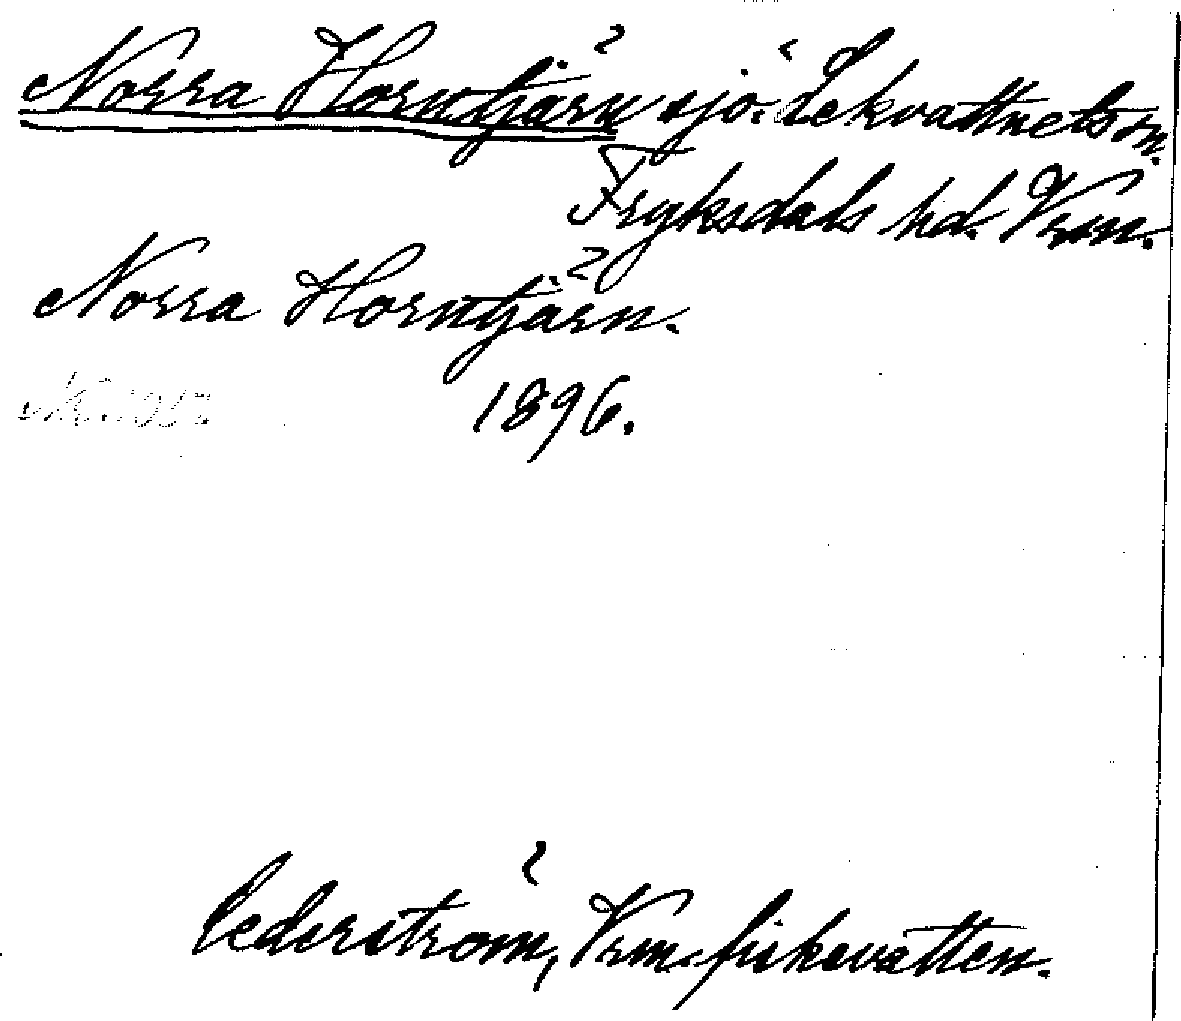 Norra Horntjärn sjö. Lekvattnets sn.
Fryksdals hd. Vrm.
Norra Horntjärn.
1896.
Cederström, Vrm. fiskevatten.